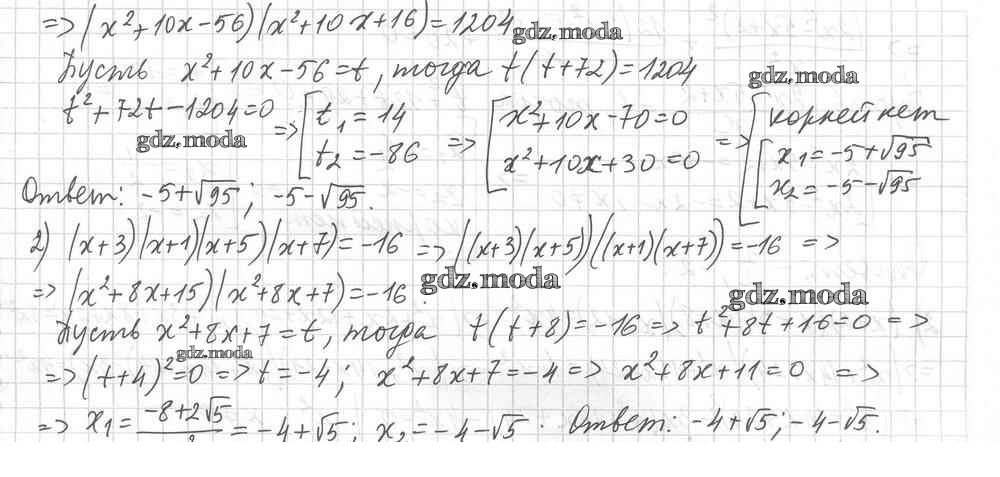 => (x²+10x-56)(x²+10x+16)=1204
gdz.moda
Пусть x²+10x-56=t, тогда t(t+72)=1204
gdz.moda
t²+72t-1204=0 => [t₁=14 t₂=-86 => [x²+10x-70=0 x²+10x+30=0 => [корней нет [x₁=-5+√95 x₂=-5-√95
gdz.moda
Ответ: -5+√95; -5-√95.
2) (x+3)(x+1)(x+5)(x+7)=-16 => ((x+3)(x+5))((x+1)(x+7))=-16 =>
gdz.moda
=> (x²+8x+15)(x²+8x+7)=-16.
gdz.moda
Пусть x²+8x+7=t, тогда t(t+8)=-16 => t²+8t+16=0 =>
gdz.moda
=> (t+4)²=0 => t=-4; x²+8x+7=-4 => x²+8x+11=0 =>
=> x₁=(-8+2√5)/2=-4+√5; x₂=-4-√5. Ответ: -4+√5; -4-√5.